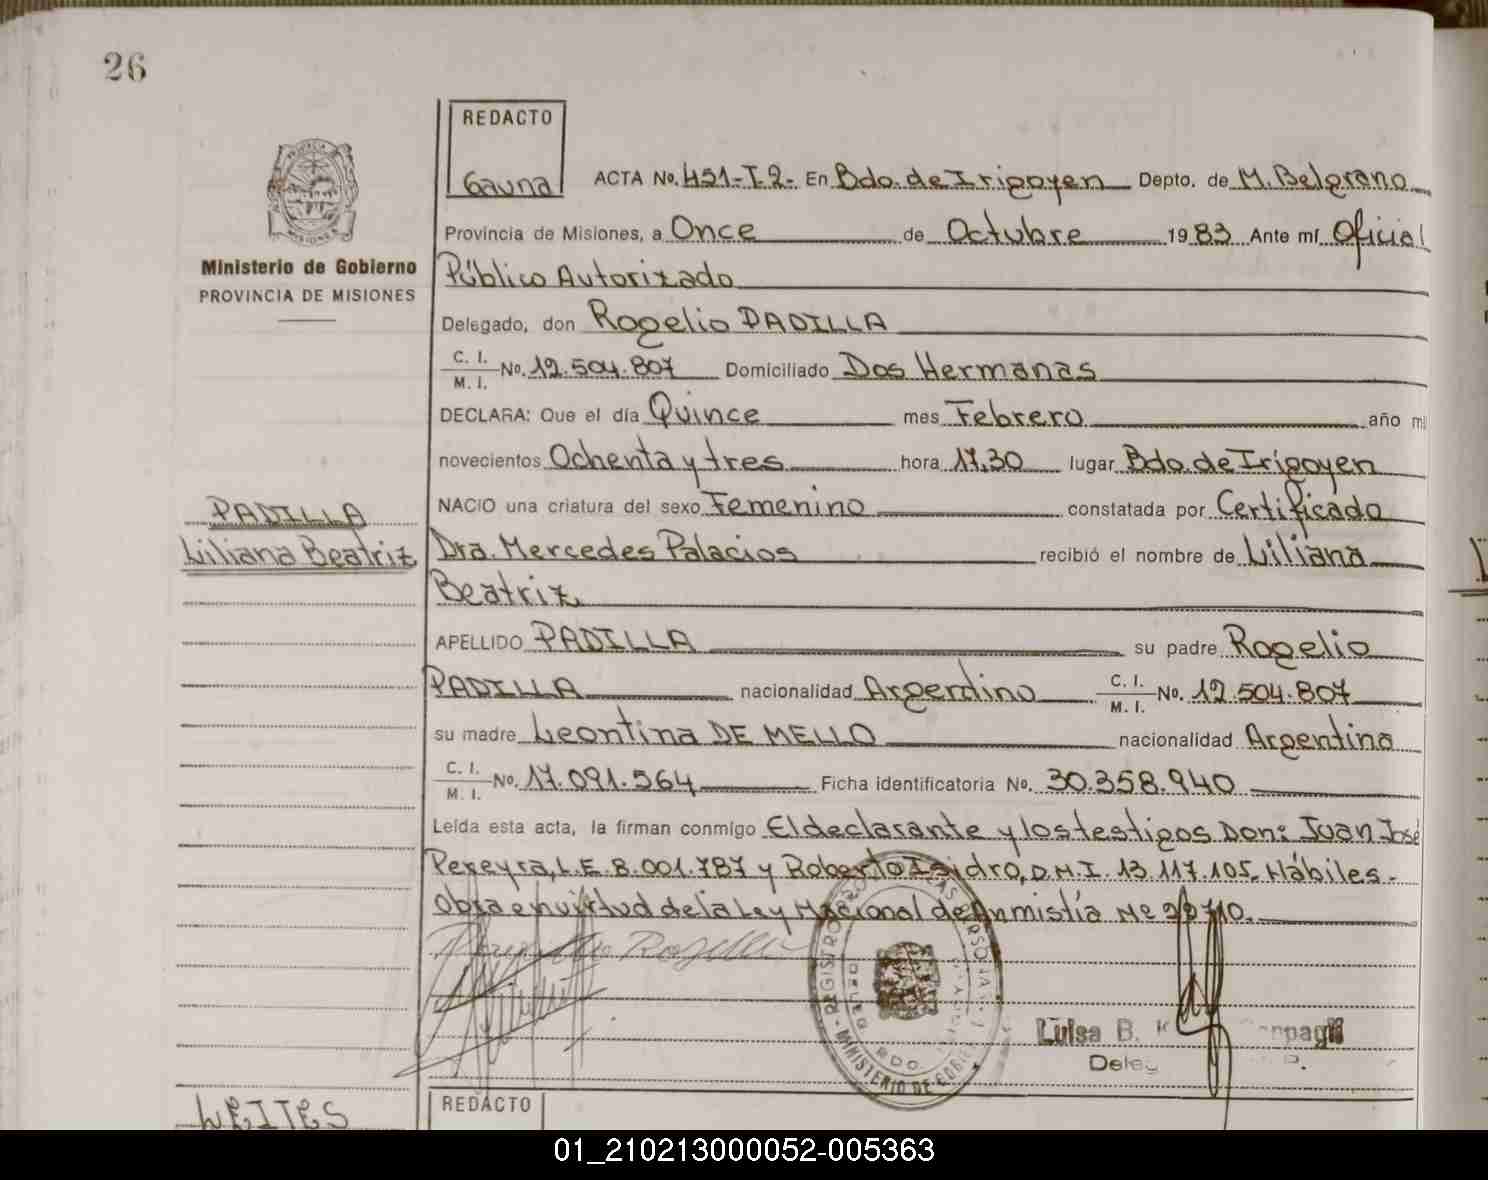 26
REDACTO
Gauna
ACTA No. 451-T.2- En Bdo. de Irigoyen Depto. de M. Belgrano
Provincia de Misiones, a Once de Octubre 1983 Ante mí Oficial
Ministerio de Gobierno
PROVINCIA DE MISIONES
Público Autorizado
Delegado, don Rogelio PADILLA
C. I. / M. I. No. 12.504.807 Domiciliado Dos Hermanas
DECLARA: Que el día Quince mes Febrero año mi
novecientos Ochenta y tres hora 17,30 lugar Bdo. de Irigoyen
NACIO una criatura del sexo Femenino constatada por Certificado
PADILLA
Liliana Beatriz
Dra. Mercedes Palacios recibió el nombre de Liliana
Beatriz
APELLIDO PADILLA su padre Rogelio
PADILLA nacionalidad Argentino C. I. / M. I. No. 12.504.807
su madre Leontina DE MELLO nacionalidad Argentina
C. I. / M. I. No. 17.091.564 Ficha identificatoria No. 30.358.940
Leída esta acta, la firman conmigo El declarante y los testigos Don: Juan José
Pereyra, L.E. 8.001.787 y Roberto Isidro, D.M.I. 13.117.105. Hábiles.-
Obra en virtud de la Ley Nacional de Anmistía Nº 22710.
REGISTRO PERSONAS
MINISTERIO DE GOBIE
BDO.
Luisa B.
Deleg
WEITES
REDACTO
01_210213000052-005363